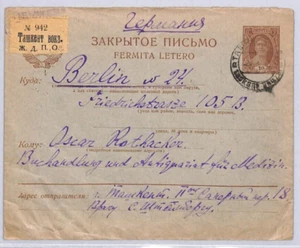 Германия
№ 942
Ташкент вокз.
Ж. Д. П. О.
ЗАКРЫТОЕ ПИСЬМО
FERMITA LETERO
Куда: Berlin N 24.
Friedrichstrasse 105 B.
Кому: Oscar Rothacker
Buchhandlung und Antiquariat für Medizin.
Адрес отправителя: г. Ташкент, 18
Врачу С.